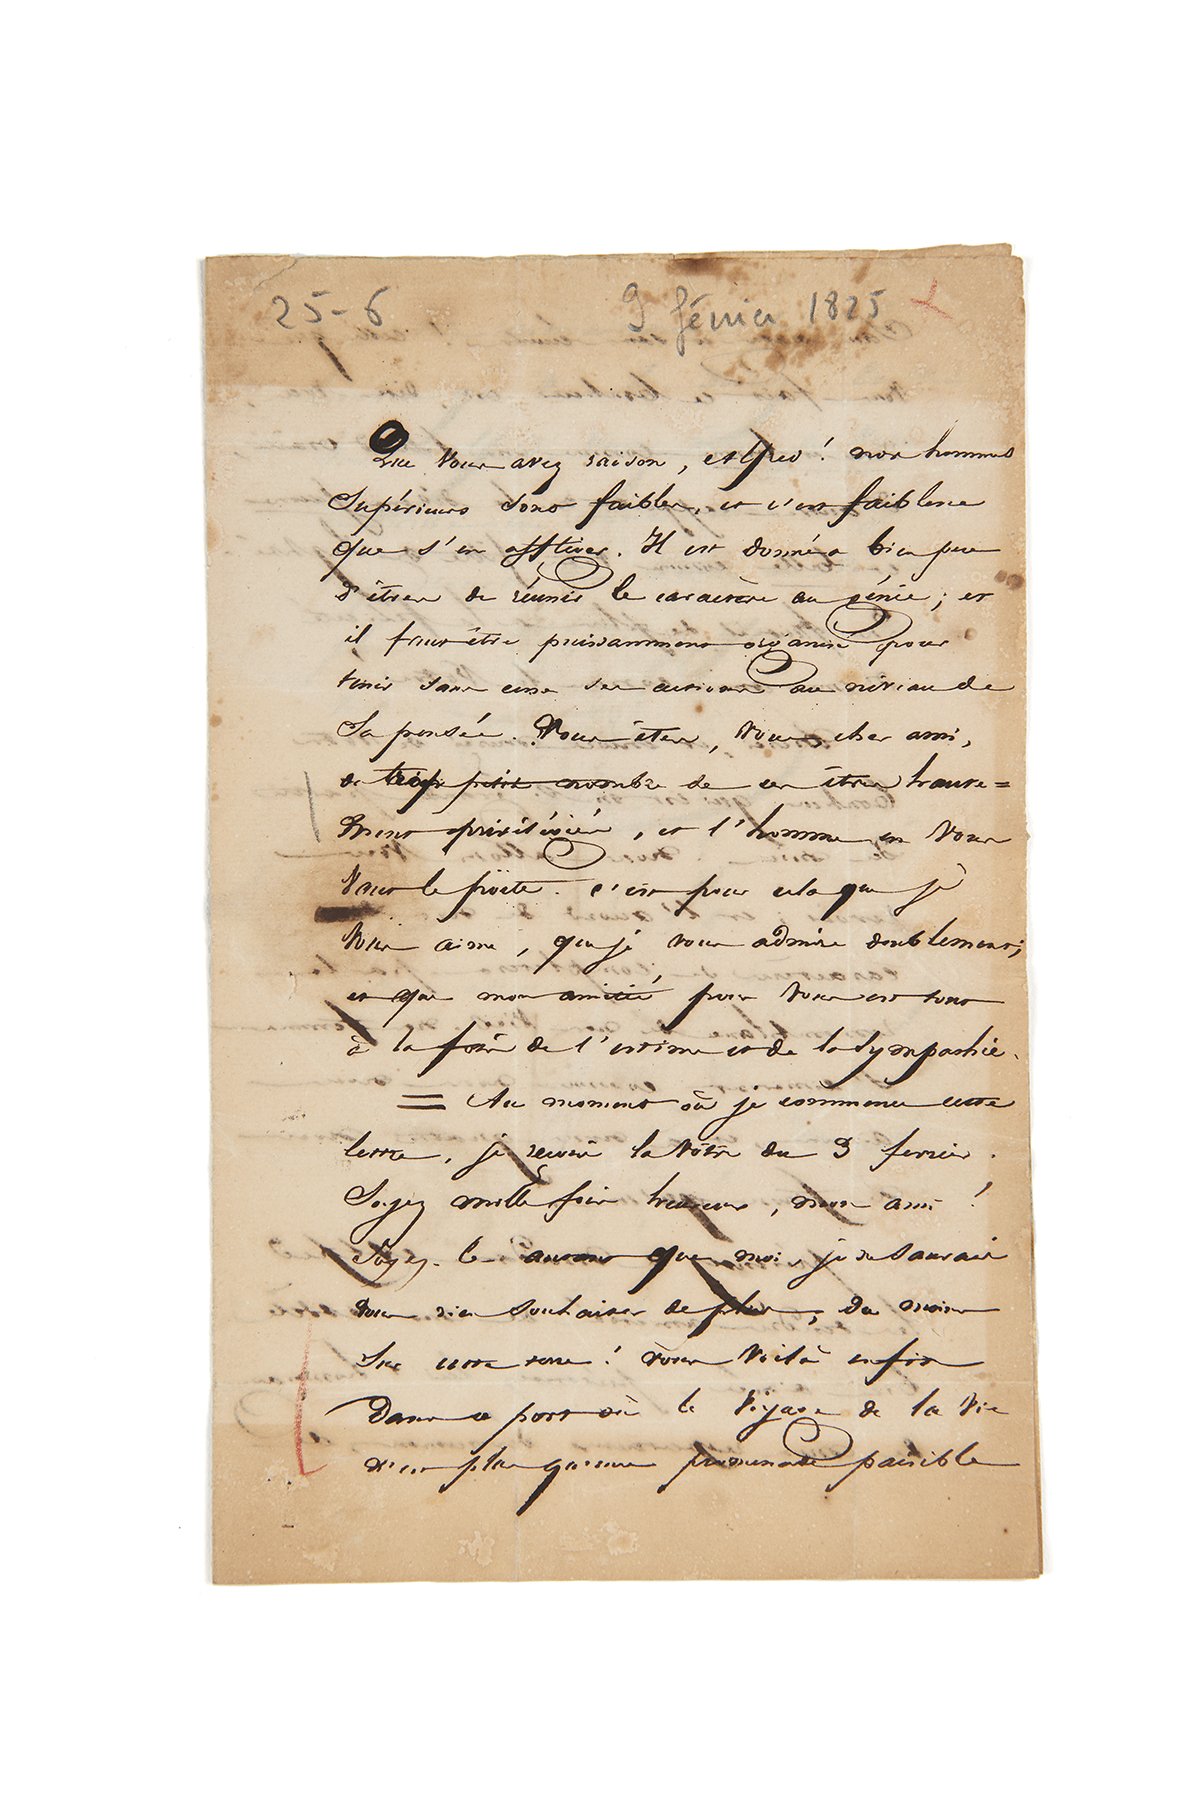 25-6
9 février 1825
Que vous avez raison, Alfred ! nos hommes
supérieurs sont faibles, et c'est faiblesse
que s'en affliger. Il est donné à bien peu
d'êtres de réunir le caractère au génie ; et
il faut être puissamment organisé pour
tenir sans cesse ses actions au niveau de
sa pensée. Vous êtes, vous, cher ami,
du trop petit nombre de ces êtres haute=
ment privilégiés, et l'homme en vous
vaut le poëte. c'est pour cela que je
vous aime, que je vous admire doublement ;
et que mon amitié pour vous est tout
à la fois de l'estime et de la sympathie.
= Au moment où je commence cette
lettre, je reçois la vôtre du 3 février.
Soyez mille fois heureux, mon ami !
Soyez-le autant que moi, je ne saurais
vous rien souhaiter de plus, du moins
sur cette terre ! vous voilà enfin
dans ce port où le voyage de la vie
n'est plus qu'une promenade paisible